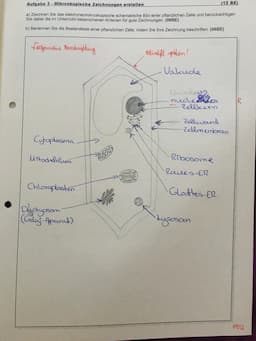 Aufgabe 3 - Mikroskopische Zeichnungen erstellen (12 BE)
a) Zeichnen Sie das elektronenmikroskopische schematische Bild einer pflanzlichen Zelle und berücksichtigen
Sie dabei die im Unterricht besprochenen Kriterien für gute Zeichnungen.
b) Benennen Sie die Bestandteile einer pflanzlichen Zelle, indem Sie Ihre Zeichnung beschriften.
Bleistift spitzen!
Vakuole
Zellkern
R
Zellwand
Zellmembran
Cytoplasma
Ribosome
Mitochondrium
Raues-ER
Chloroplasten
Glattes-ER
Dictyosom
(Golgi-Apparat)
Lysosom